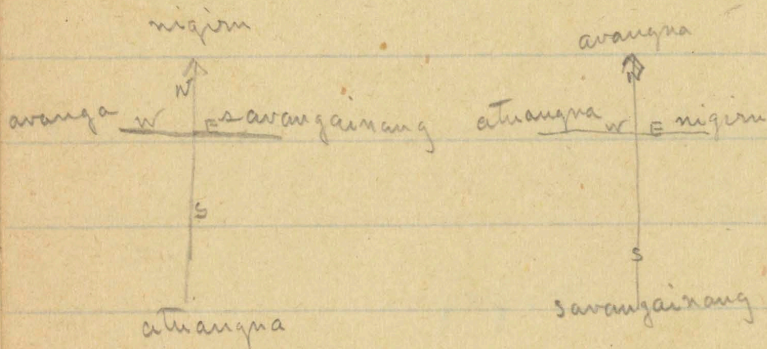 nigiru
N
avanga W E savangainang
S
atuangna
avangna
N
atuangna W E nigiru
S
savangainang